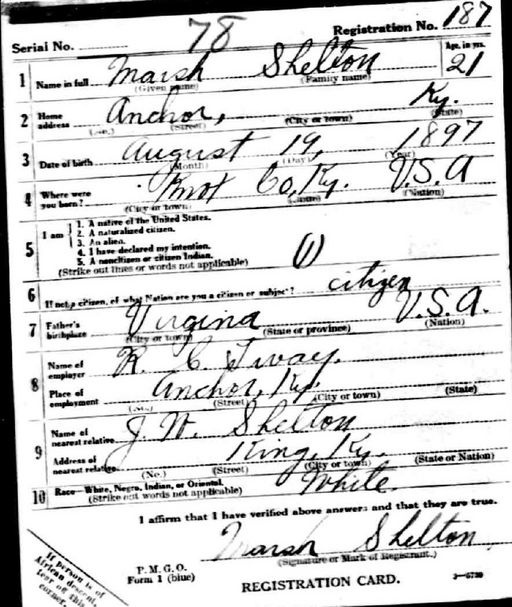 Serial No. 78 Registration No. 187
1 Name in full Marsh Shelton Age, in yrs. 21
(Given name) (Family name)
2 Home address Anchor, Ky.
(No.) (Street) (City or town) (State)
3 Date of birth August 19, 1897
(Month) (Day) (Year)
4 Where were you born? Knot Co, Ky. U.S.A
(City or town) (State) (Nation)
5 I am
1. A native of the United States.
2. A naturalized citizen.
3. An alien.
4. I have declared my intention.
5. A noncitizen or citizen Indian.
(Strike out lines or words not applicable) (1)
6 If not a citizen, of what Nation are you a citizen or subject? citizen
7 Father's birthplace Virgina U.S.A.
(City or town) (State or province) (Nation)
8 Name of employer R. C. Tway.
Place of employment Anchor, Ky.
(No.) (Street) (City or town) (State)
9 Name of nearest relative J. W. Shelton
Address of nearest relative King, Ky.
(No.) (Street) (City or town) (State or Nation)
10 Race—White, Negro, Indian, or Oriental. White.
(Strike out words not applicable)
I affirm that I have verified above answers and that they are true.
Marsh Shelton
(Signature or Mark of Registrant.)
P. M. G. O.
Form 1 (blue) REGISTRATION CARD.
If person is of
African descent,
tear off this
corner.